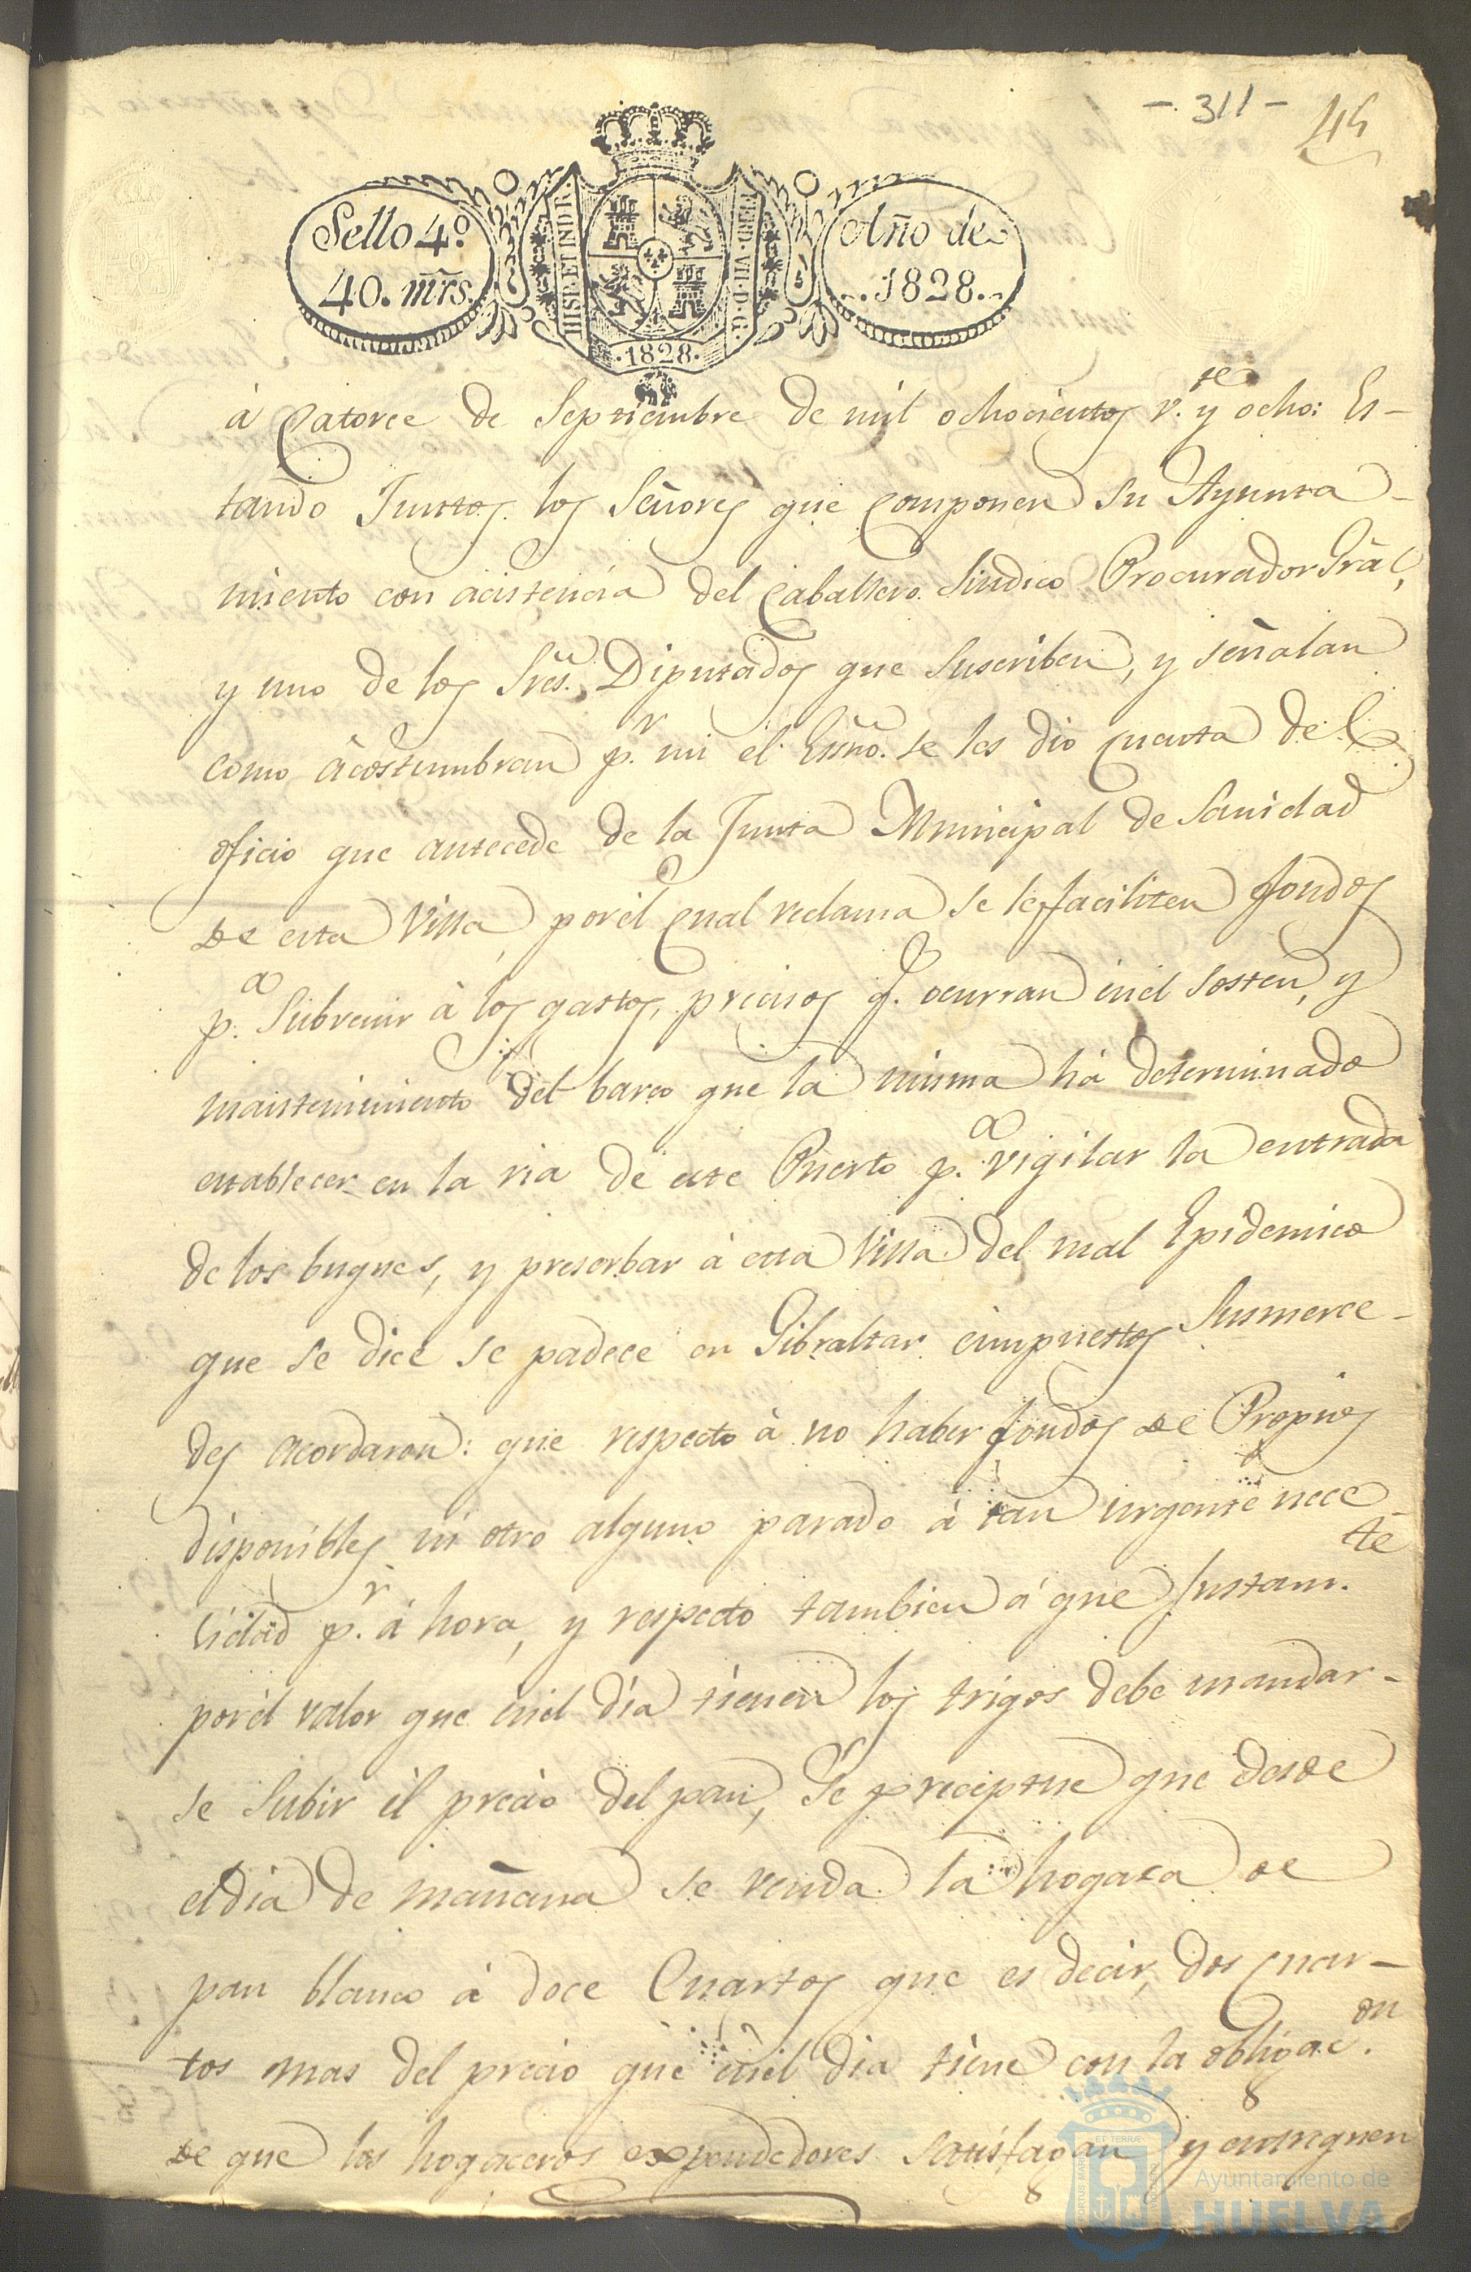 - 311 -
45
Sello 4º.
40. mrs.
HISP. ET IND. R.
FERD. VII. D. G.
.1828.
Año de
..1828..
à Catorce de Septiembre de mil ochocientos v.te y ocho: Es-
tando Juntos los Señores que componen su Ayunta-
miento con acistencia del Caballero Sindico Procurador Grâl,
y uno de los Sres. Diputados que suscriben, y señalan
como âcostumbran p.r mi el Essno. se les dio cuenta del
oficio que antecede de la Junta Municipal de Sanidad
de esta Villa, por él Cual reclama se le faciliten fondos
p.a Subvenir â los gastos, precisos q. ocurran enel sosten, y
mantenimiento del barco que la misma há determinado
establecer en la ria de este Puerto p.a vigilar la entrada
de los buques, y preserbar à esta Villa del mal Epidemico
que se dice se padece en Gibraltar eimpuestos Susmerce-
des acordaron: que respecto à no haber fondos de Propios
disponibles ni otro alguno parado à tan urgente nece-
sidad p.r á hora, y respecto tambien á que Justam.te
por él valor que enel día tienen los trigos debe mandar-
se Subir él precio del pan, Se preceptue que desde
el dia de mañana se venda la hogaza de
pan blanco à doce Cuartos que es decir, dos cuar-
tos mas del precio que enel dia tiene con la obligac.on
de que los hogaceros expendedores satisfagan y entreguen
Ayuntamiento de
HUELVA